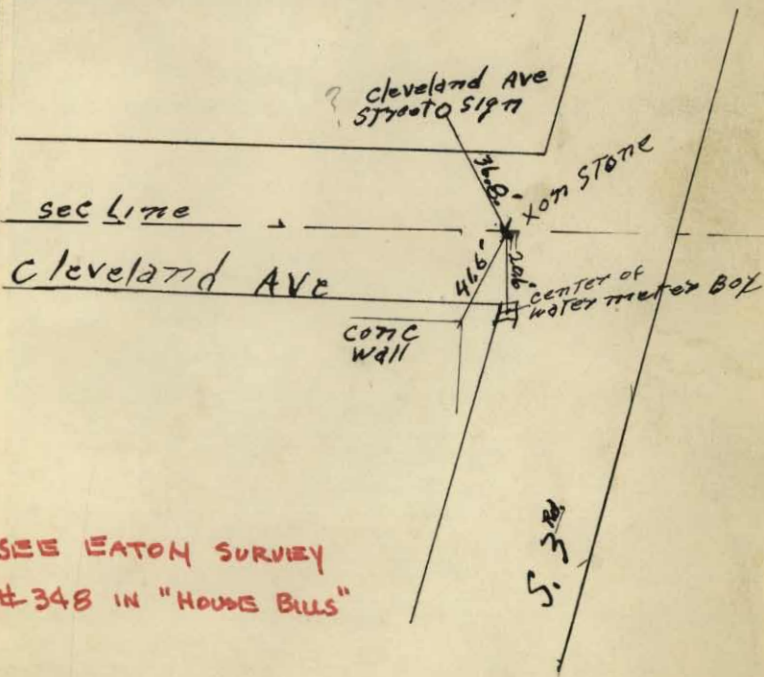 ?
Cleveland Ave
Street Sign
36.8'
X on STONE
sec Line
Cleveland AVE
20.6'
center of
water meter Box
conc
wall
S. 3rd
SEE EATON SURVEY
#348 IN "HOUSE BILLS"